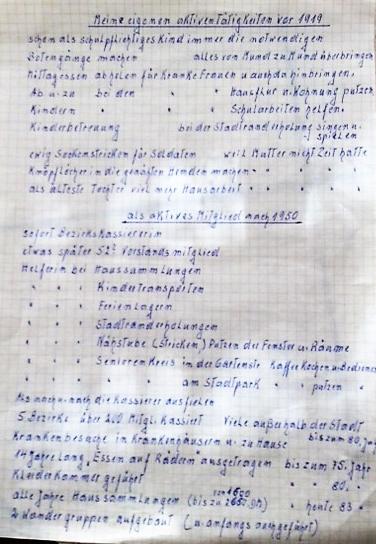 Meine eigenen aktiven tätigkeiten vor 1919
schon als schulpflichtiges Kind immer die notwendigen
Botengänge machen alles von Mund zu Mund überbringen
Mittagessen abholen für Kranke Frauen u. auch da hinbringen.
Ab u. zu bei den " " Hausflur u. Wohnung putzen
Kindern " " Schularbeiten helfen.
Kinderbetreuung bei der Stadtranderholung singen u. spielen
ewig Sockenstricken für Soldaten weil Mutter nicht Zeit hatte
Knopflöcher in die genähten Hemden machen " " " "
als älteste Tochter viel mehr Hausarbeit " " " "
als aktives Mitglied nach 1950
sofort Bezirkskassiererin
etwas später 52? Vorstandsmitglied
Helferin bei Haussammlungen
" " " Kindertransporten
" " " Ferienlagern
" " " Stadtranderholungen
" " " Nähstube (Stricken) Putzen der Fenster u. Räume
" " " Seniorenkreis in der Gartenstr Kaffee Kochen u. Bedienen
" " " " am Stadtpark " " putzen "
Als nach u. nach die Kassierer ausfielen
5 Bezirke über 200 Mitgl. Kassiert Viele außerhalb der Stadt
Krankenbesuche in Krankenhäusern u. zu Hause bis zum 80. Jah
14 Jahre lang „Essen auf Rädern" ausgetragen bis zum 75. Jahr
Kleiderkammer geführt " " 80. "
alle Jahre Haussammlungen (bis zu DM) " heute 83 "
2 Wandergruppen aufgebaut (u. anfangs auch geführt)